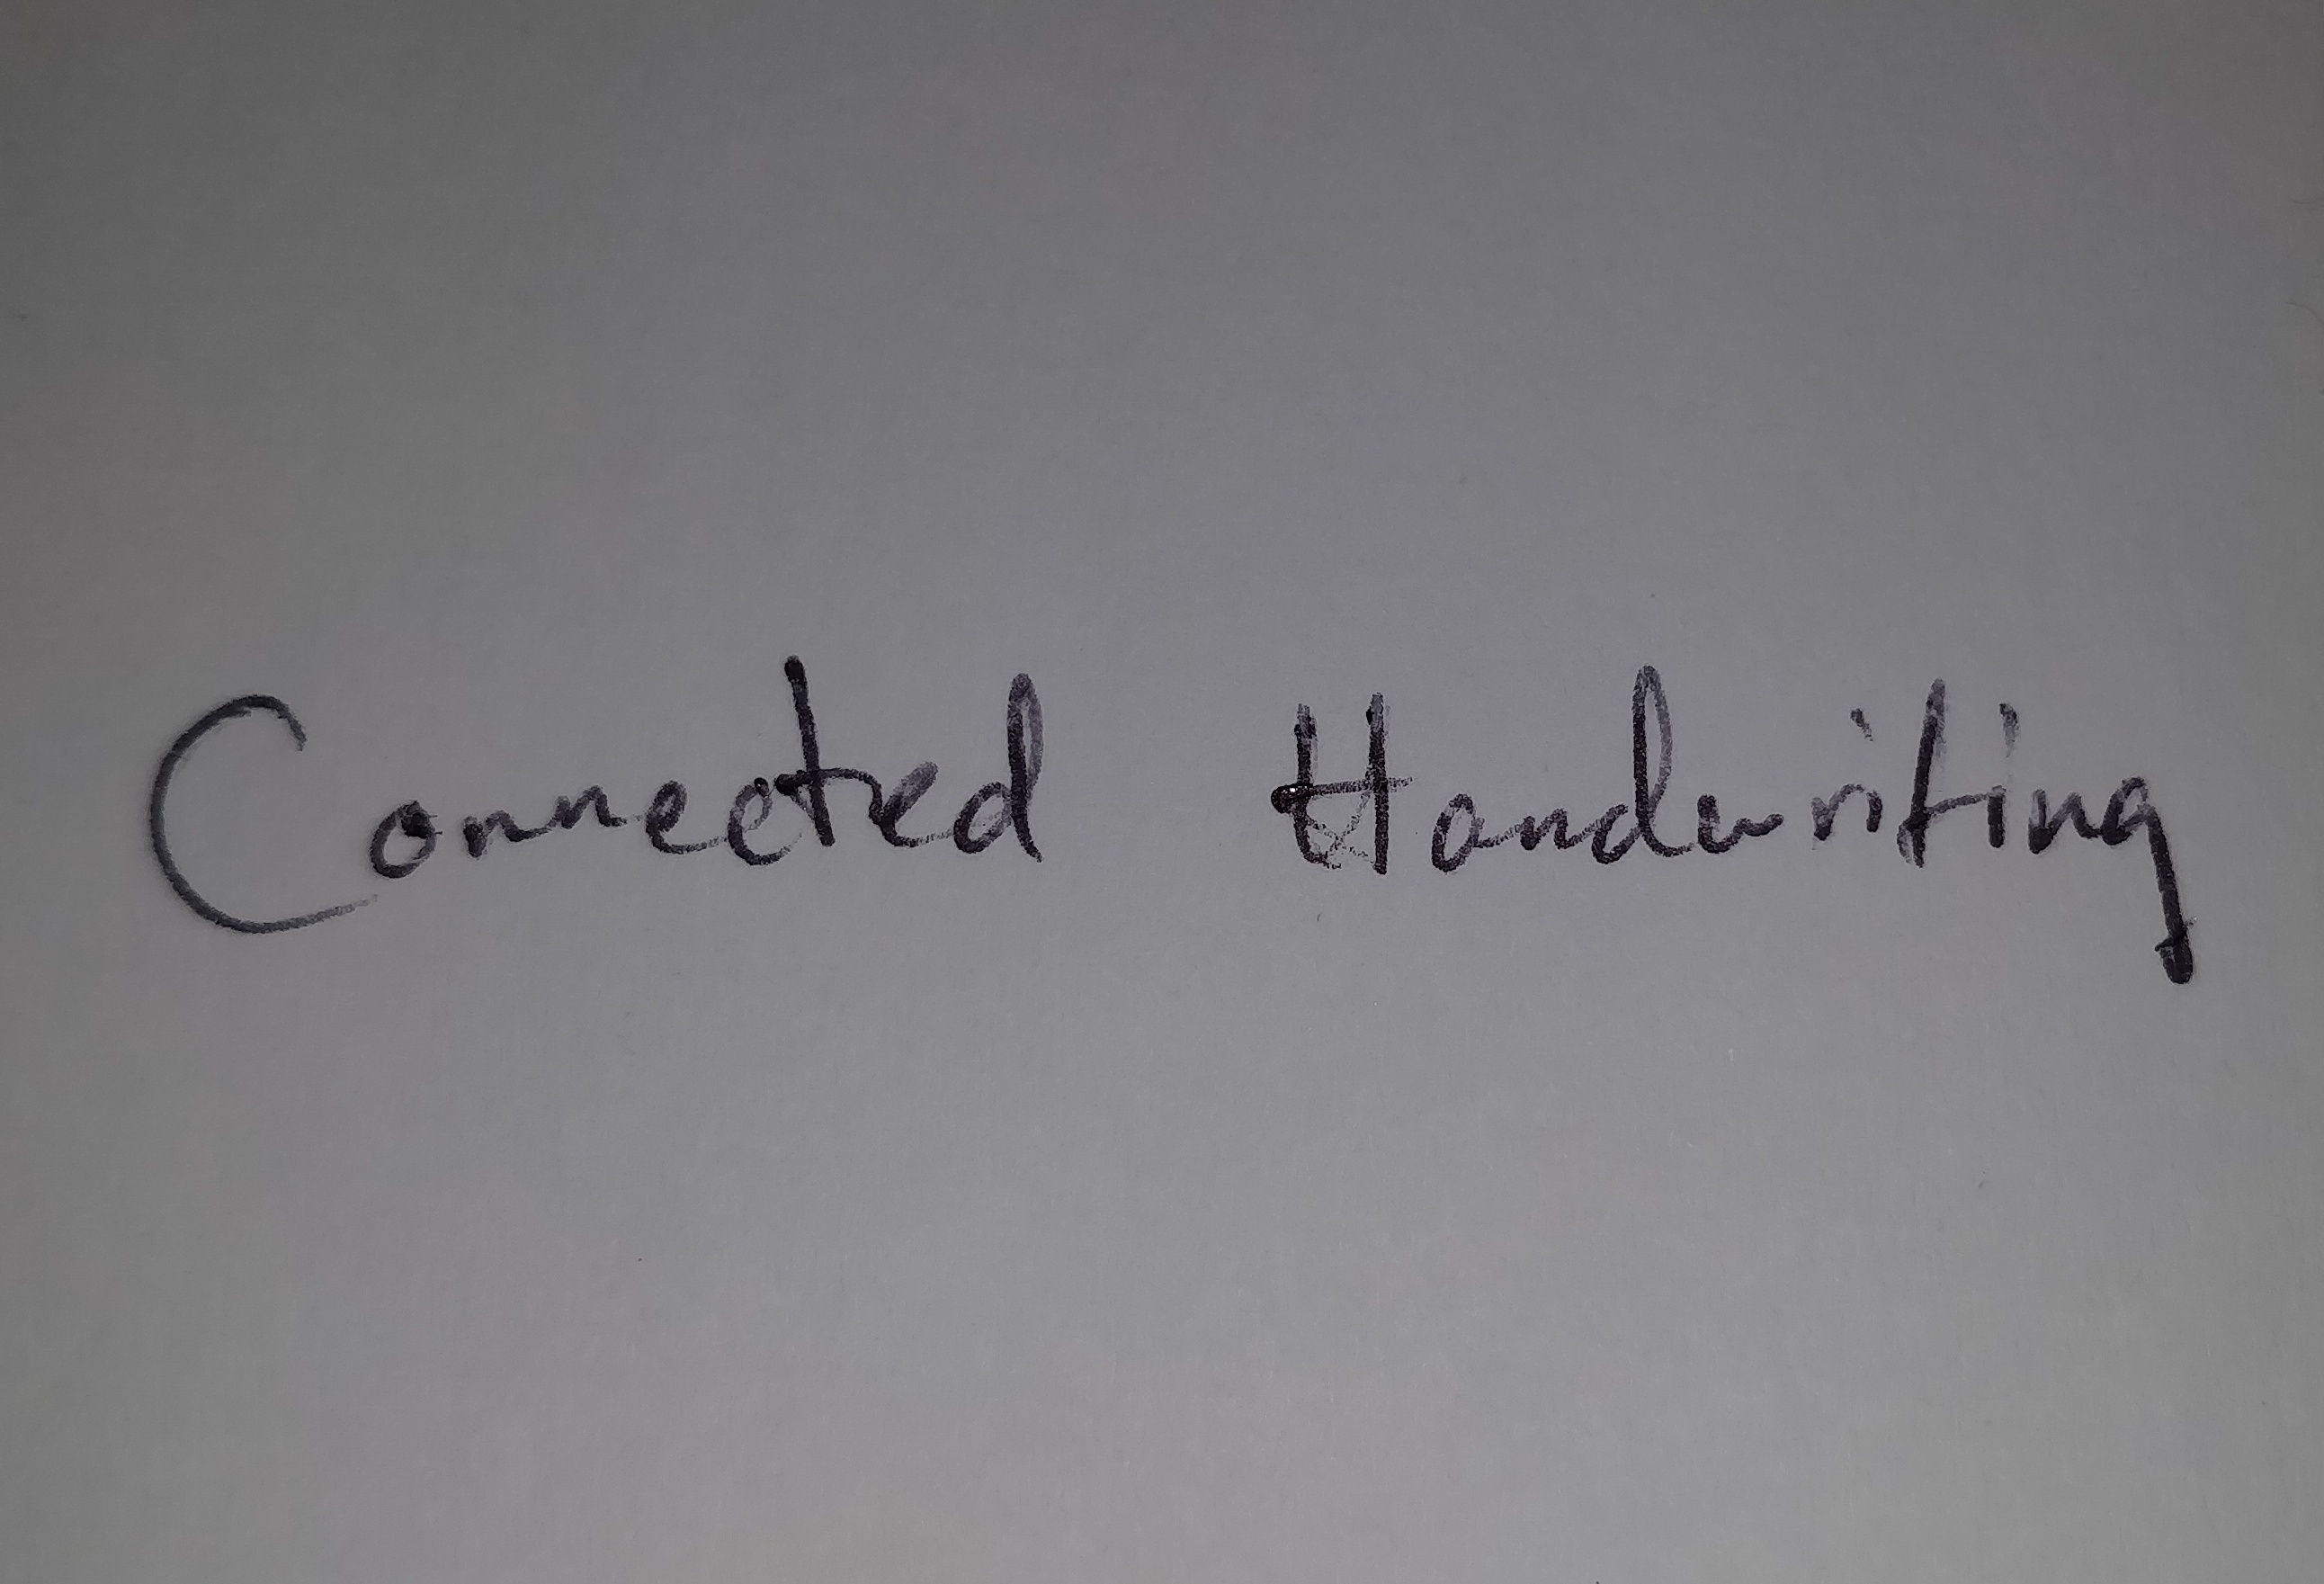 Connected Handwriting